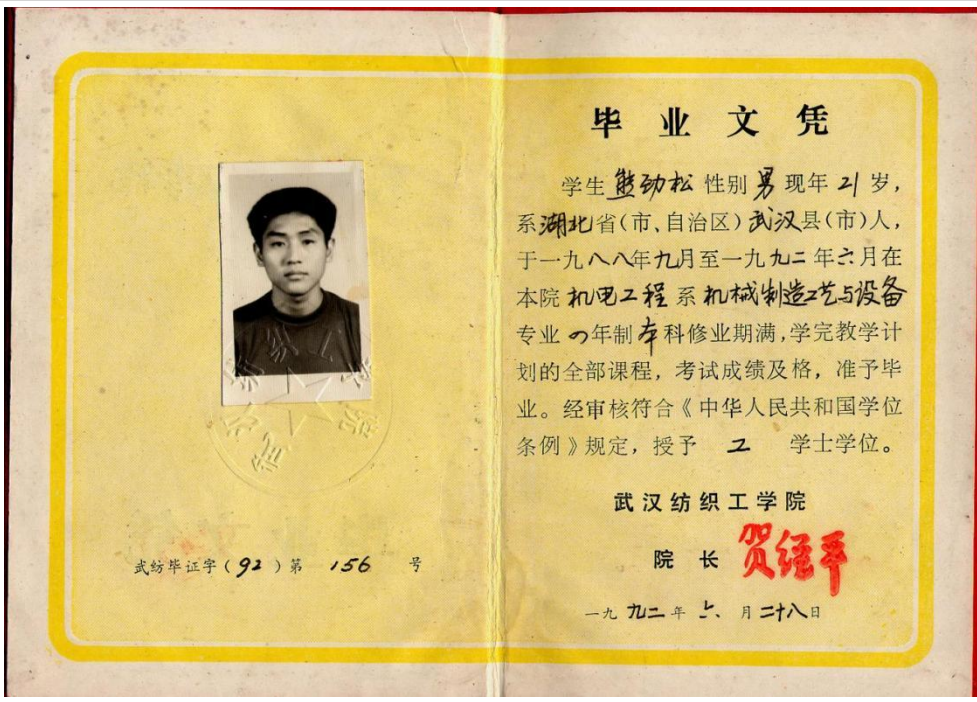 武纺毕证字(92)第 156 号
毕业文凭
学生熊劲松性别男现年21岁,
系湖北省(市、自治区)武汉县(市)人,
于一九八八年九月至一九九二年六月在
本院机电工程系机械制造工艺与设备
专业四年制本科修业期满,学完教学计
划的全部课程,考试成绩及格,准予毕
业。经审核符合《中华人民共和国学位
条例》规定,授予 工 学士学位。
武汉纺织工学院
院长 贺经平
一九九二年六月二十八日